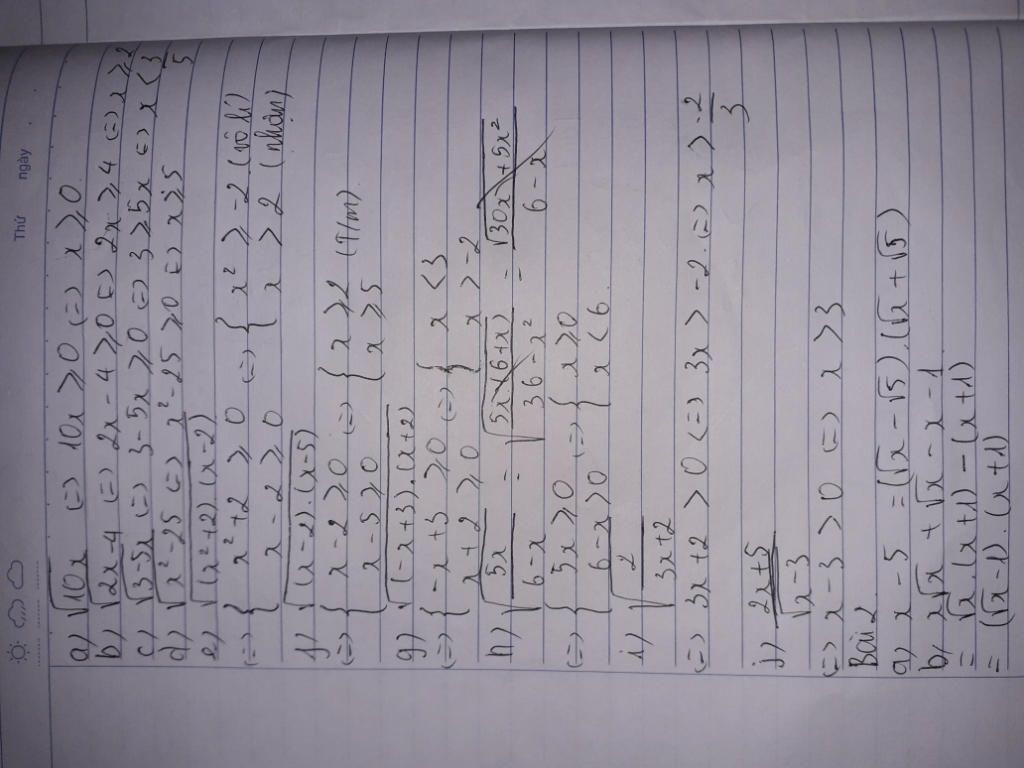 Thứ ngày
a) √10x (=) 10x ≥ 0 (=) x ≥ 0
b) √2x-4 (=) 2x - 4 ≥ 0 (=) 2x ≥ 4 (=) x ≥ 2
c) √3-5x (=) 3 - 5x ≥ 0 (=) 3 ≥ 5x (=) x < 3/5
d) √x² - 25 (=) x² - 25 ≥ 0 (=) x ≥ 5
e) √(x²+2).(x-2)
(=) { x² + 2 ≥ 0 (=) { x² ≥ -2 (vô lí)
x - 2 ≥ 0 x > 2 (nhận)
f) √(x-2).(x-5)
(=) { x - 2 ≥ 0 (=) { x ≥ 2 (T/m)
x - 5 ≥ 0 x ≥ 5
g) √(-x+3).(x+2)
(=) { -x + 3 ≥ 0 (=) { x < 3
x + 2 ≥ 0 x > -2
h) √5x/6-x = √5x(6+x)/36-x² = √30x+5x²/6-x
(=) { 5x ≥ 0 (=) { x ≥ 0
6 - x > 0 x < 6
i) √2/3x+2
(=) 3x + 2 > 0 (=) 3x > -2 (=) x > -2/3
j) 2x+5/√x-3
(=) x - 3 > 0 (=) x > 3
Bài 2
a) x - 5 = (√x - √5).(√x + √5)
b) x√x + √x - x - 1
= √x.(x+1) - (x+1)
= (√x-1).(x+1)